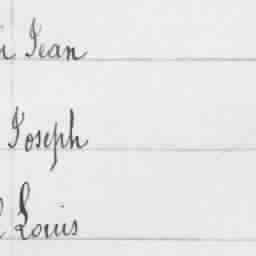 Jean
Joseph
Louis